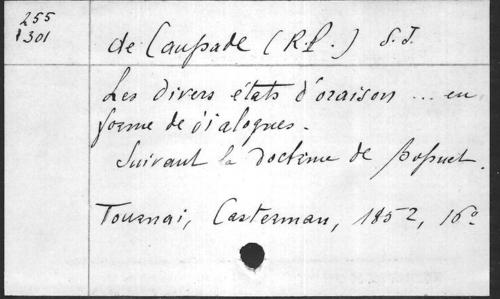 255
301
de Caussade (R.P.) S.J.
Les divers états d'oraison ... en
forme de dialogues.
Suivant la doctrine de Bossuet.
Tournai, Casterman, 1852, 16º